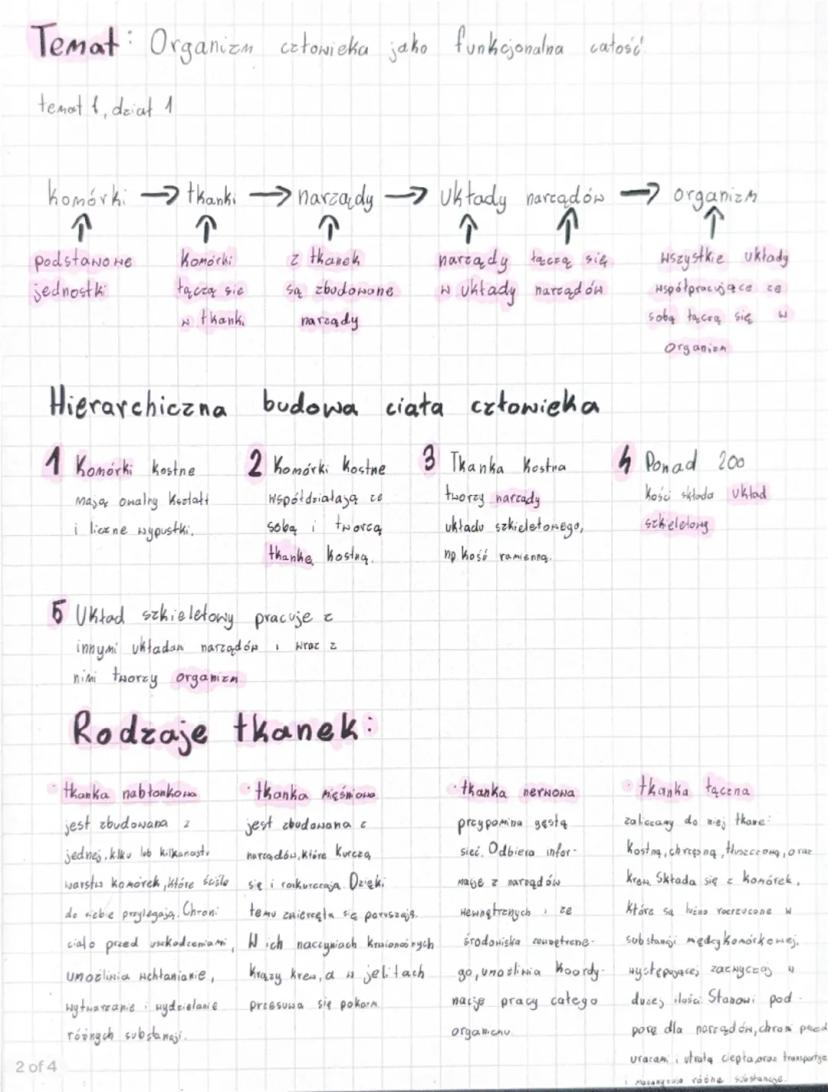 Temat: Organizm człowieka jako funkcjonalna całość
temat 1, dział 1
komórki → tkanki → narządy → układy narządów → organizm
podstawowe
jednostki
komórki
łączą się
w tkanki
z tkanek
są zbudowane
narządy
narządy łączą się
w układy narządów
wszystkie układy
współpracujące ze
sobą łączą się w
organizm
Hierarchiczna budowa ciała człowieka
1 Komórki kostne
mają owalny kształt
i liczne wypustki.
2 Komórki kostne
współdziałają ze
sobą i tworzą
tkankę kostną.
3 Tkanka kostna
tworzy narządy
układu szkieletowego,
np kość ramienną.
4 Ponad 200
kości składa układ
szkieletowy
5 Układ szkieletowy pracuje z
innymi układam narządów i wraz z
nimi tworzy organizm
Rodzaje tkanek:
• tkanka nabłonkowa
jest zbudowana z
jednej, kilku lub kilkunastu
warstw komórek, które ściśle
do siebie przylegają. Chroni
ciało przed uszkodzeniami,
umożliwia wchłanianie,
wytwarzanie i wydzielanie
różnych substancji.
• tkanka mięśniowa
jest zbudowana z
narządów, które kurczą
się i rozkurczają. Dzięki
temu zwierzęta się poruszają.
W ich naczyniach krwionośnych
krąży krew, a w jelitach
przesuwa się pokarm
• tkanka nerwowa
przypomina gęstą
sieć. Odbiera infor-
macje z narządów
wewnętrznych i ze
środowiska zewnętrzne-
go, umożliwia koordy-
nację pracy całego
organizmu.
• tkanka łączna
zaliczamy do niej tkane:
kostną, chrzęsną, tłuszczową, oraz
krew. Składa się z komórek,
które są luźno rozrzucone w
substancji międzykomórkowej,
występującej zazwyczaj w
dużej ilości. Stanowi pod-
porę dla narządów, chroni przed
urazami i utratą ciepła, oraz transportuje
i różne substancje.
2 of 4